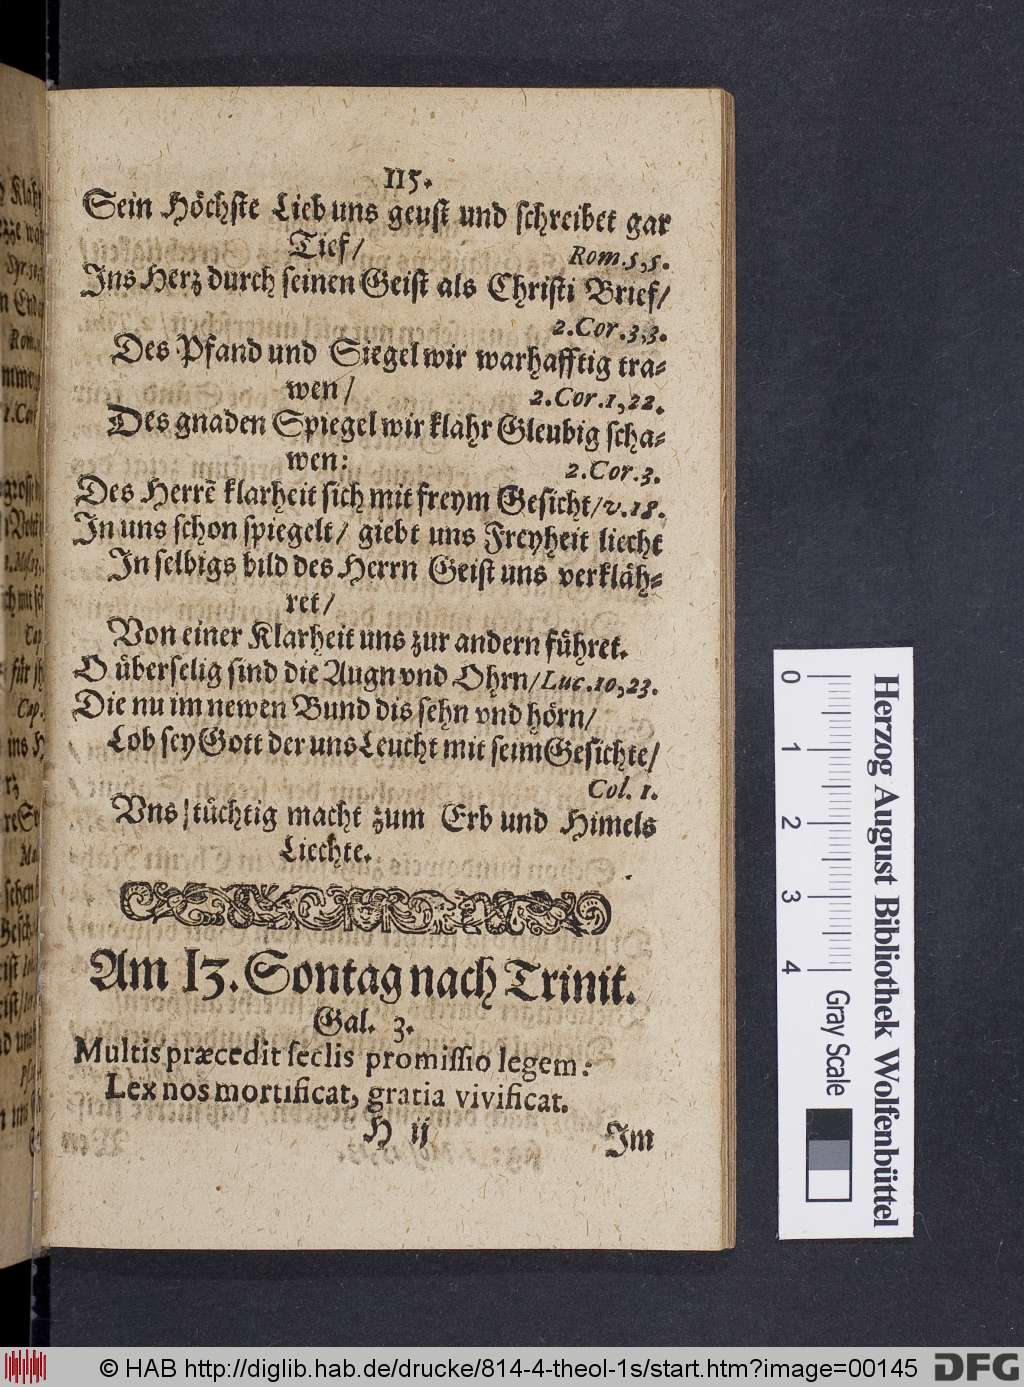 115.
Sein Höchste Lieb uns geust und schreibet gar
Tief/ Rom.5,5.
Ins Herz durch seinen Geist als Christi Brief/
2.Cor.3,3.
Des Pfand und Siegel wir warhafftig tra-
wen/ 2.Cor.1,22.
Des gnaden Spiegel wir klahr Gleubig scha-
wen: 2.Cor.3.
Des Herrē klarheit sich mit freym Gesicht/v.18.
In uns schon spiegelt/ giebt uns Freyheit liecht
In selbigs bild des Herrn Geist uns verkläh-
ret/
Von einer Klarheit uns zur andern führet.
O überselig sind die Augn vnd Ohrn/Luc.10,23.
Die nu im newen Bund dis sehn vnd hörn/
Lob sey Gott der uns Leucht mit seim Gesichte/
Col. 1.
Vns/tüchtig macht zum Erb und Himels
Liechte.
Am 13. Sontag nach Trinit.
Gal. 3.
Multis præcedit seclis promissio legem:
Lex nos mortificat, gratia vivificat.
H ij Im
Herzog August Bibliothek Wolfenbüttel
0 1 2 3 4 Gray Scale
© HAB http://diglib.hab.de/drucke/814-4-theol-1s/start.htm?image=00145 DFG